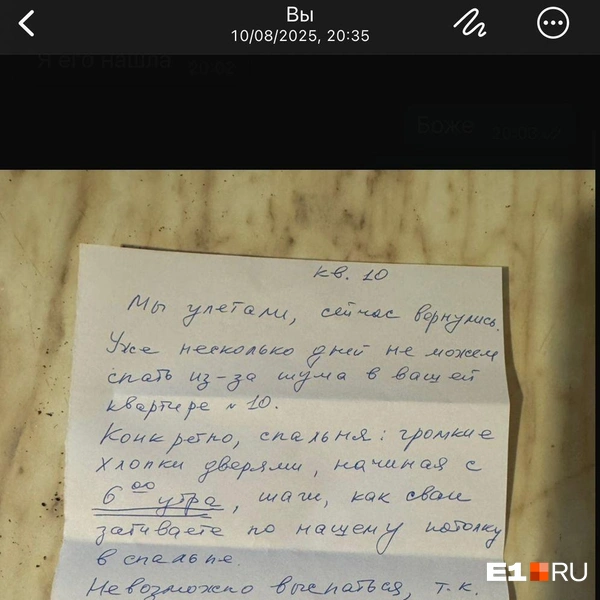 Вы
10/08/2025, 20:35
Я его нашла 20:02
Боже
кв. 10
Мы улетали, сейчас вернулись.
Уже несколько дней не можем
спать из-за шума в вашей
квартире № 10.
Конкретно, спальня: громкие
хлопки дверями, начиная с
6 00 утра, шаги, как сваи
забиваете по нашему потолку
в спальне.
Невозможно выспаться, т.к.
E1.RU